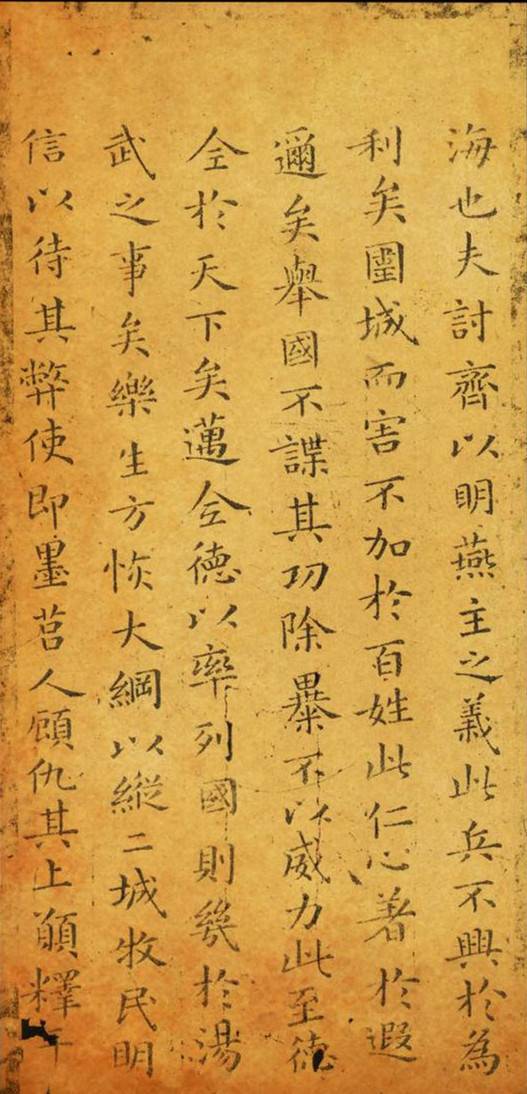 海也夫討齊以明燕主之義此兵不興於為
利矣圍城而害不加於百姓此仁心著於遐
邇矣舉國不謀其功除暴不以威力此至德
全於天下矣邁全德以率列國則幾於湯
武之事矣樂生方恢大綱以縱二城牧民明
信以待其弊使即墨莒人顧仇其上願釋干